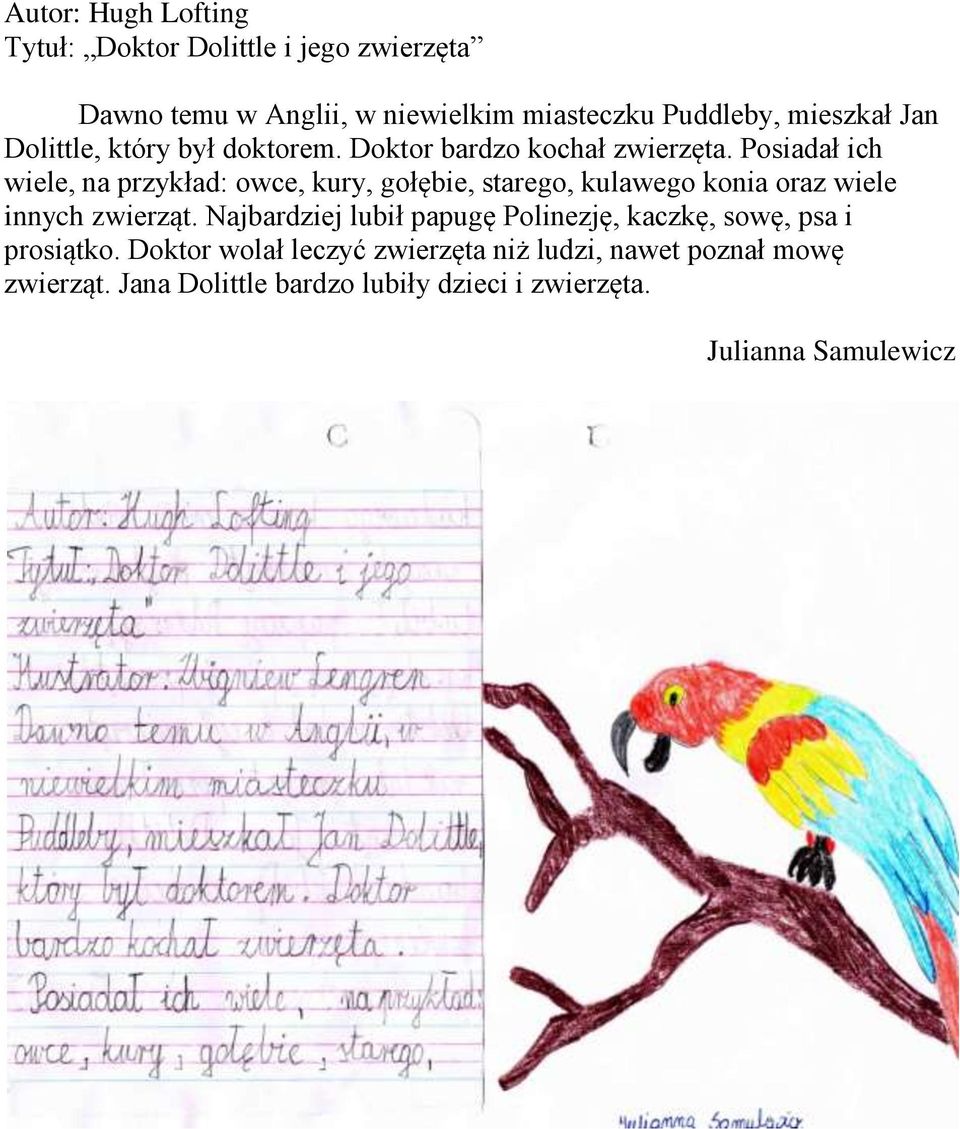 Autor: Hugh Lofting
Tytuł: „Doktor Dolittle i jego zwierzęta”
Dawno temu w Anglii, w niewielkim miasteczku Puddleby, mieszkał Jan
Dolittle, który był doktorem. Doktor bardzo kochał zwierzęta. Posiadał ich
wiele, na przykład: owce, kury, gołębie, starego, kulawego konia oraz wiele
innych zwierząt. Najbardziej lubił papugę Polinezję, kaczkę, sowę, psa i
prosiątko. Doktor wolał leczyć zwierzęta niż ludzi, nawet poznał mowę
zwierząt. Jana Dolittle bardzo lubiły dzieci i zwierzęta.
Julianna Samulewicz
C
Autor: Hugh Lofting
Tytuł: „Doktor Dolittle i jego
zwierzęta”
Ilustrator: Zbigniew Lengren
Dawno temu w Anglii, w
niewielkim miasteczku
Puddleby, mieszkał Jan Dolittle,
który był doktorem. Doktor
bardzo kochał zwierzęta.
Posiadał ich wiele, na przykład:
owce, kury, gołębie, starego,
Julianna